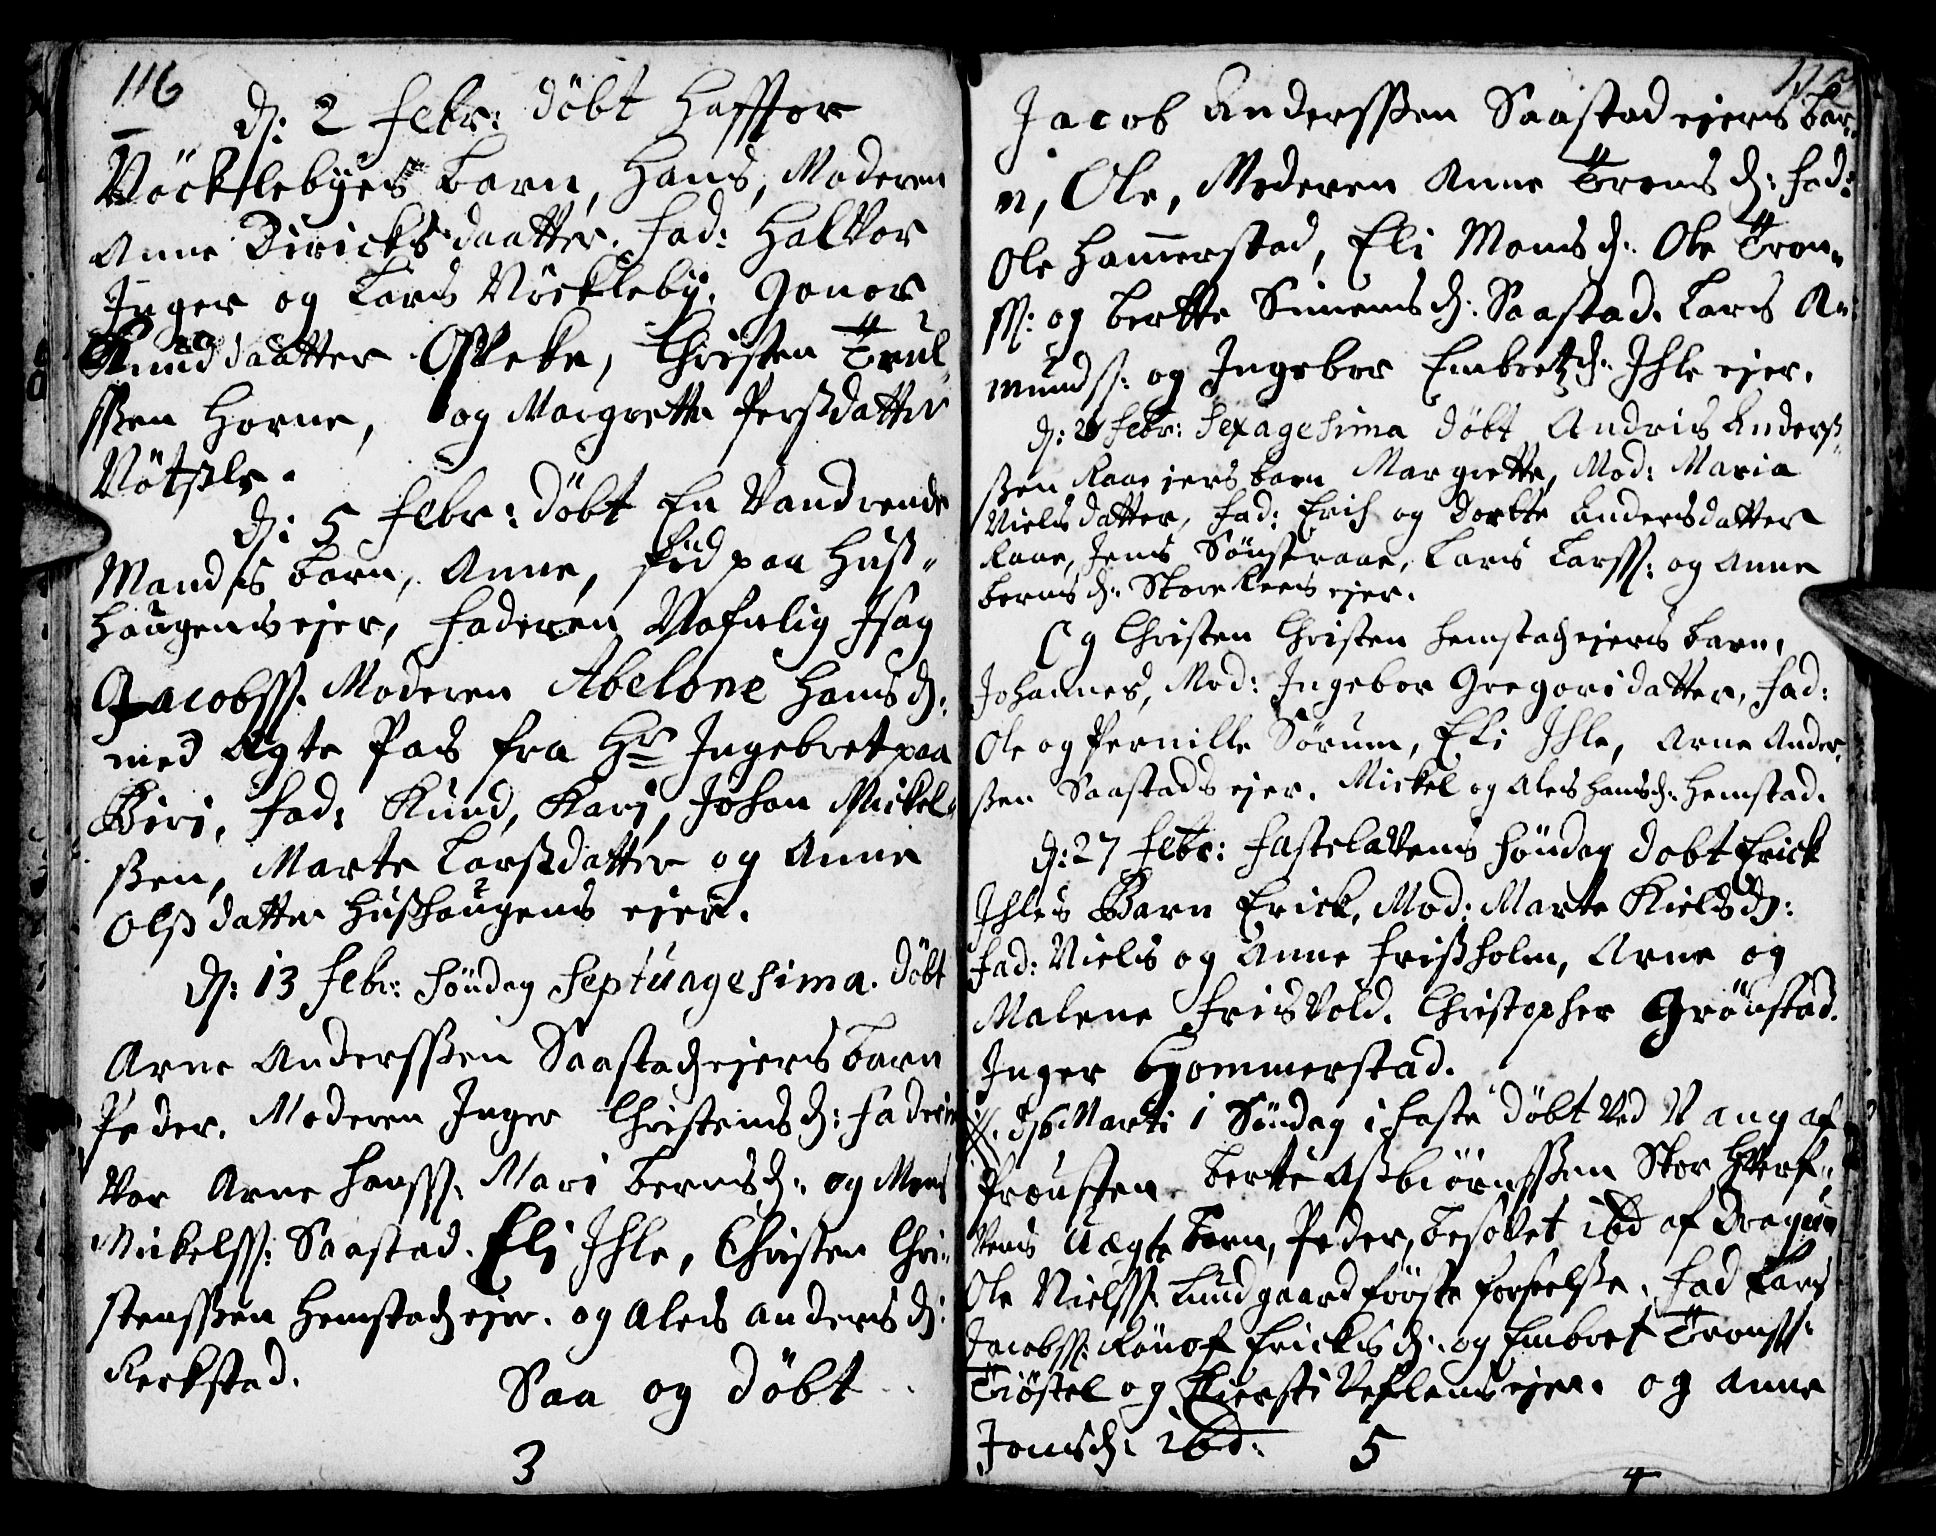 116
d: 2 Febr: döbt Haffor
Nöcklebÿes Barn, Hans, Moderen
Anne Diricks daatter. Fad: Halvor
Inger og Lars Nöcklebÿ. Gonor
Knud daatter Opleke, Christen Trul
sßen Horne, og Margrette Persdatter
Nötßle.
d: 5 Febr: döbt En Vandrende
Mands Barn, Anne, föd paa Huß-
haugens ejer, Faderen Nafnlig Isag
Jacobss: Moderen Abelone Hans d:
med Ægte Pas fra Hr Ingebret paa
Biri, Fad: Knud, Kari, Johan Mickel-
ßen, Marte Larsdatter og Anne
Olß datter Hußhaugens ejer.
d: 13 Febr: Söndag Septuagesima. Döbt
Arne Andersßen Saastad ejers barn
Peder. Moderen Inger Christens d: Faderne
var Arne Hansss: Mari Berns d: og Mons
Mickelss: Saastad. Eli Ihle, Christen Chri-
stensßen Hemstad ejer. og Aleis Anders d:
Kerkstad.
Saa og döbt
3
Jacob Andersßen Saastad ejers bar-
n, Ole, Moderen Anne Trons d: Fad:
Ole Hammerstad, Eli Mons d: Ole Tron-
ss: og Bertte Simens d: Saastad. Lars A-
munds: og Ingebor Embretz d: Ihle ejer.
d: 2 Febr: Sexagesima döbt Andris Anders-
ßen Raae jers barn Margrette, Mod: Maria
Niels datter, Fad: Erich og Dortte Andersdatter
Raae, Jens Sönstraae, Lars Larss: og Anne
Berns d: Store Rees ejer.
Og Christen Christen Hemstad ejers Barn,
Johannes, Mod: Ingebor Gregori datter, Fad:
Ole og Pernille Sörum, Eli Ihle, Arne Ander
ßen Saastads ejer. Mickel og Aleis Hans d: Hemstad.
d: 27 Febr: Fastelavens Söndag döbt Erick
Ihles Barn Erick, Mod: Marte Kields d:
Fad: Niels og Anne Frißholm, Arne og
Malene Frisvold. Christopher Grönstad.
Inger Hommerstad.
d: 6 Marti 1 Söndag i Faste döbt ved Vang af
Prousten Berte Asbiörnsßen Stor Hverf-
vens Uægte Barn, Peder, besovet ibd af Dragun
Ole Nielss: Lundgaard förste forseelse. Fad Lars
Jacobss: Rönof Ericks d: og Embret Tronss:
Tiöstel og Kiersti Veflens ejer. og Anne
Jons d: ibd: 5
4